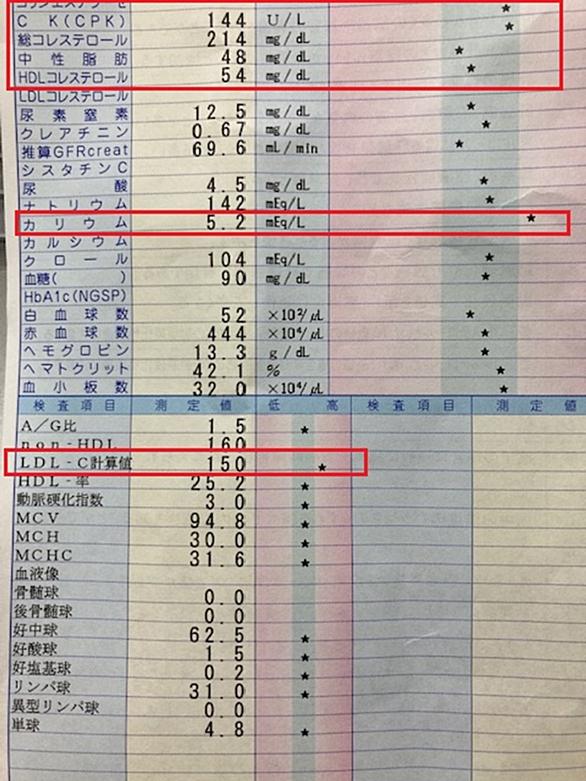 コリンエステラーゼ
C K(CPK) 144 U/L ★
総コレステロール 214 mg/dL
中性脂肪 48 mg/dL ★
HDLコレステロール 54 mg/dL ★
LDLコレステロール
尿素窒素 12.5 mg/dL ★
クレアチニン 0.67 mg/dL ★
推算GFRcreat 69.6 mL/min ★
シスタチンC
尿酸 4.5 mg/dL ★
ナトリウム 142 mEq/L ★
カリウム 5.2 mEq/L ★
カルシウム
クロール 104 mEq/L ★
血糖( ) 90 mg/dL ★
HbA1c(NGSP)
白血球数 52 ×10²/μL ★
赤血球数 444 ×10⁴/μL ★
ヘモグロビン 13.3 g/dL ★
ヘマトクリット 42.1 % ★
血小板数 32.0 ×10⁴/μL ★
検査項目 測定値 低 高 検査項目 測定値
A/G比 1.5 ★
non-HDL 160
LDL-C計算値 150 ★
HDL-率 25.2 ★
動脈硬化指数 3.0 ★
MCV 94.8 ★
MCH 30.0 ★
MCHC 31.6 ★
血液像
骨髄球 0.0
後骨髄球 0.0
好中球 62.5 ★
好酸球 1.5 ★
好塩基球 0.2 ★
リンパ球 31.0 ★
異型リンパ球 0.0
単球 4.8 ★